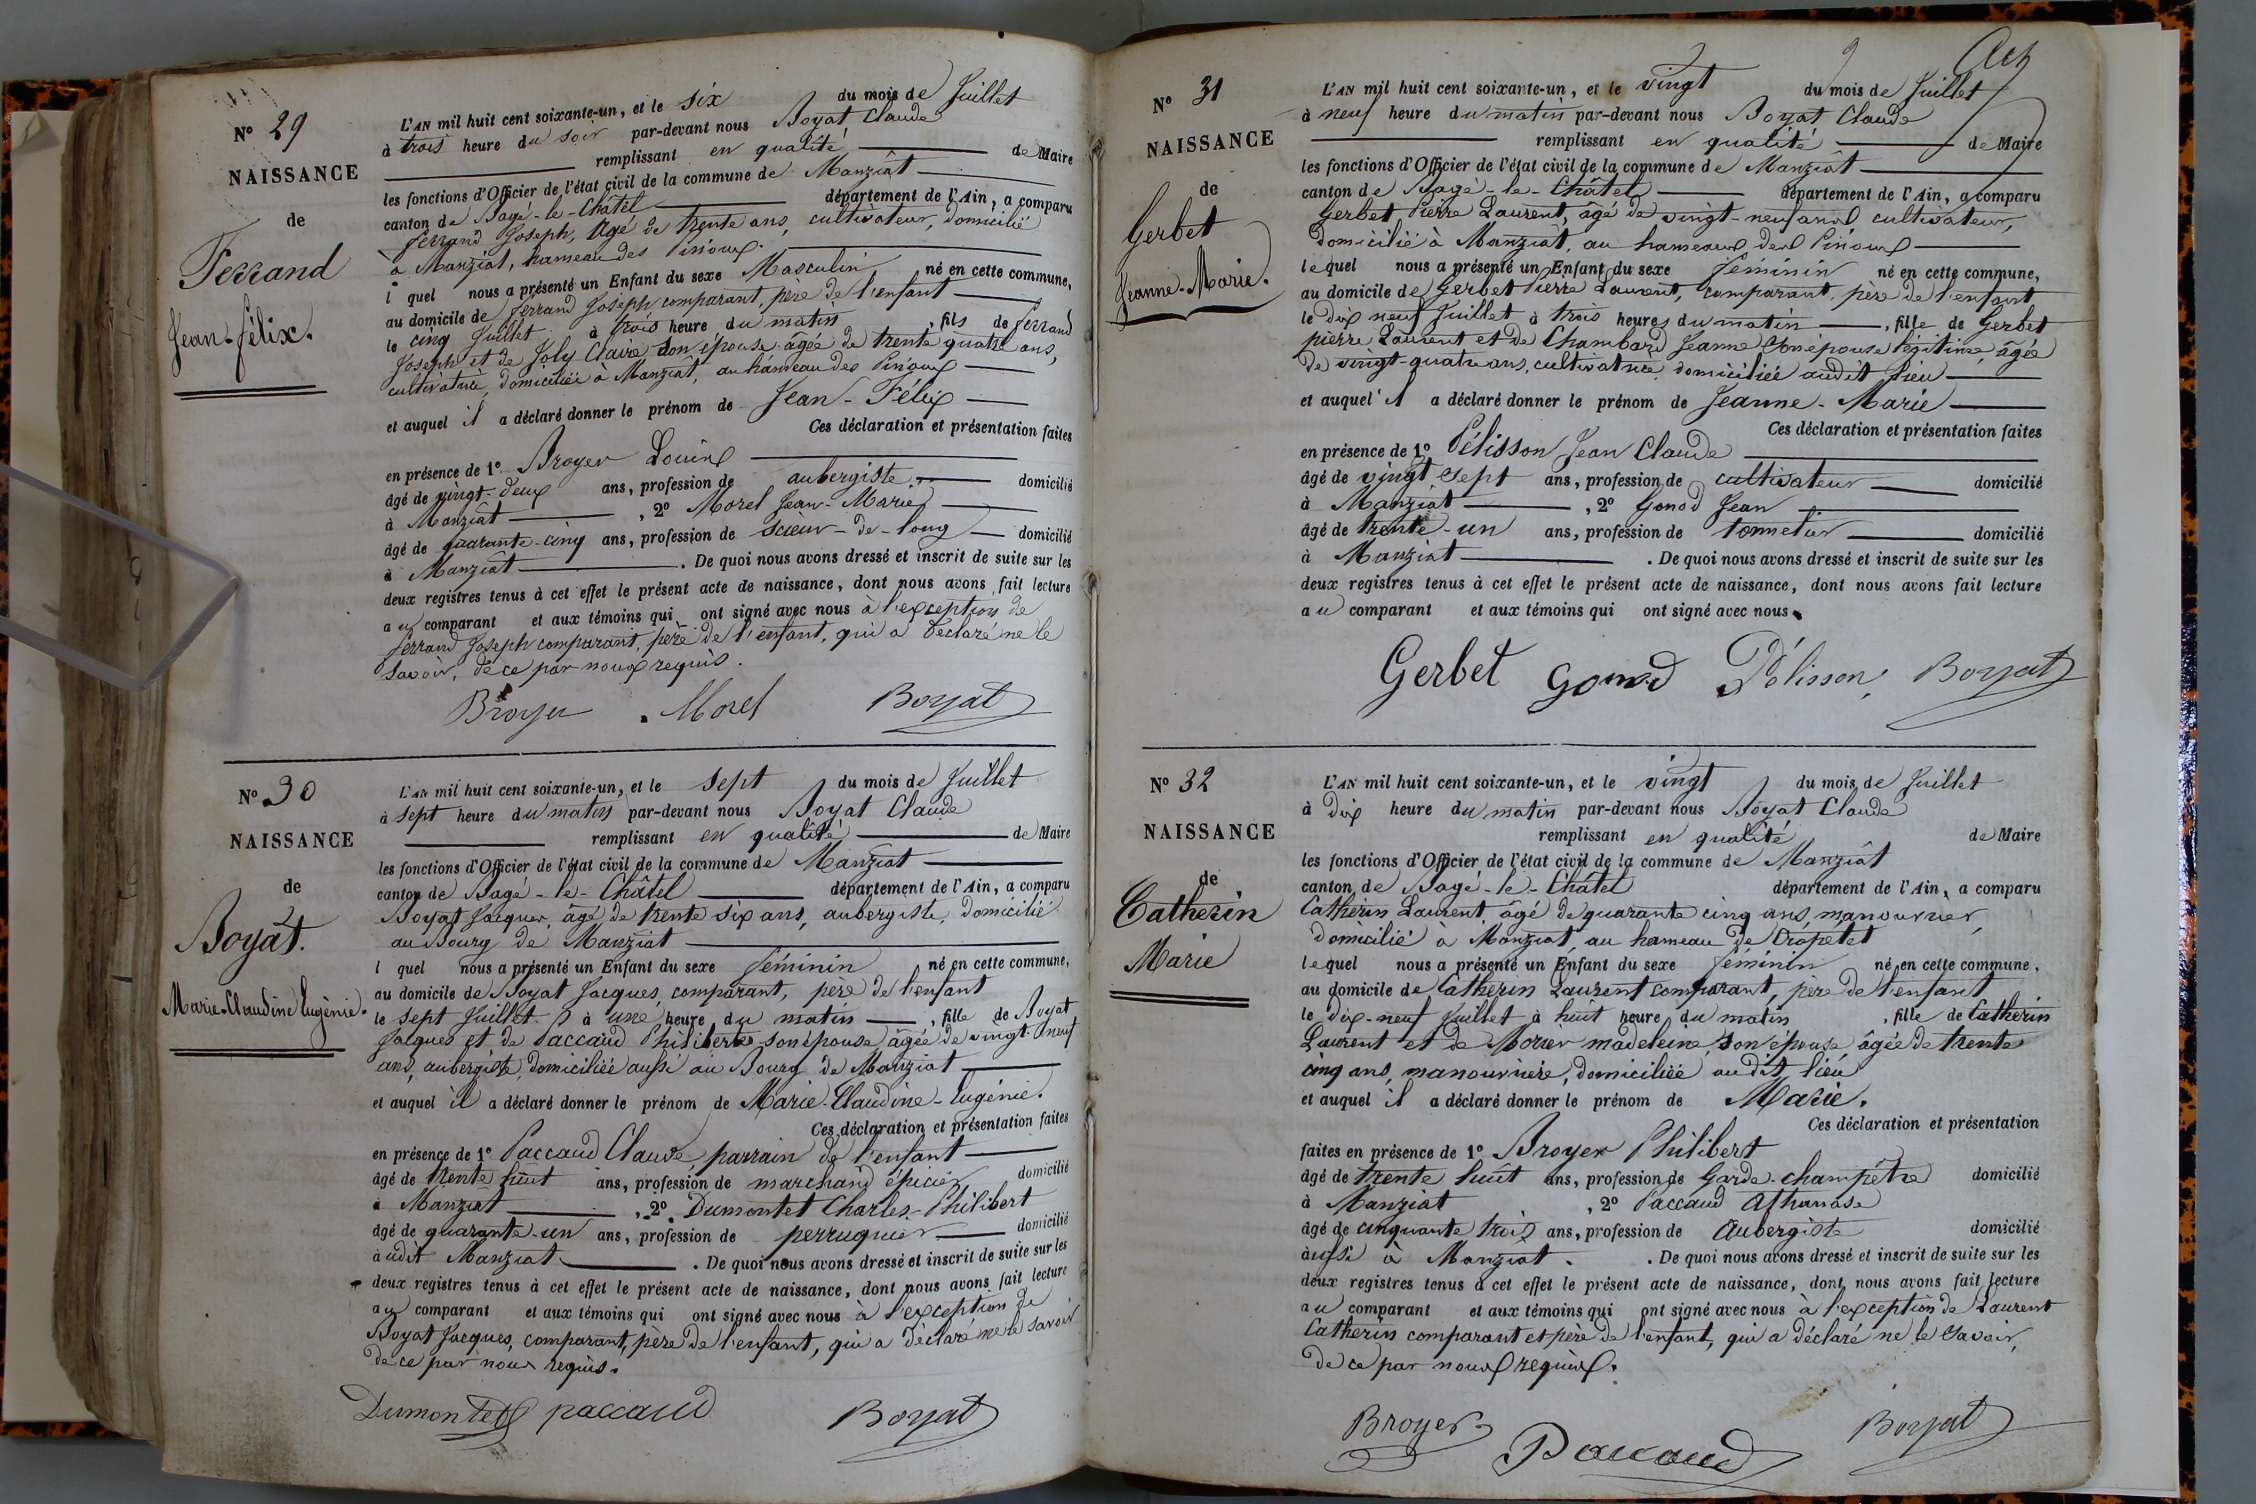 N° 29
NAISSANCE
de
Ferrand
Jean-Félix.
L'AN mil huit cent soixante-un, et le six du mois de Juillet
à trois heure du soir par-devant nous Boyat Claude
remplissant en qualité de Maire
les fonctions d'Officier de l'état civil de la commune de Manziat
canton de Bagé-le-Châtel département de l'Ain, a comparu
Ferrand Joseph, âgé de trente ans, cultivateur, domicilié
à Manziat, hameau des Pinoux.
l quel nous a présenté un Enfant du sexe Masculin né en cette commune,
au domicile de Ferrand Joseph comparant, père de l'enfant
le cinq Juillet à trois heure du matin, fils de Ferrand
Joseph et de Joly Claire son épouse âgée de trente quatre ans,
cultivatrice, domiciliée à Manziat, au hameau des Pinoux
et auquel il a déclaré donner le prénom de Jean-Félix
Ces déclaration et présentation faites
en présence de 1° Broyer Louis
âgé de vingt-deux ans, profession de aubergiste domicilié
à Manziat, 2° Morel Jean-Marie
âgé de quarante-cinq ans, profession de scieur-de-long domicilié
à Manziat. De quoi nous avons dressé et inscrit de suite sur les
deux registres tenus à cet effet le présent acte de naissance, dont nous avons fait lecture
au comparant et aux témoins qui ont signé avec nous à l'exception de
Ferrand Joseph comparant, père de l'enfant, qui a déclaré ne le
savoir, de ce par nous requis.
Broyer Morel Boyat
N° 30
NAISSANCE
de
Boyat.
Marie-Claudine Eugénie.
L'AN mil huit cent soixante-un, et le sept du mois de Juillet
à sept heure du matin par-devant nous Boyat Claude
remplissant en qualité de Maire
les fonctions d'Officier de l'état civil de la commune de Manziat
canton de Bagé-le-Châtel département de l'Ain, a comparu
Boyat Jacques, âgé de trente six ans, aubergiste, domicilié
au Bourg de Manziat
l quel nous a présenté un Enfant du sexe féminin né en cette commune,
au domicile de Boyat Jacques, comparant, père de l'enfant
le sept Juillet à une heure du matin, fille de Boyat
Jacques et de Paccaud Philiberte son épouse âgée de vingt neuf
ans, aubergiste, domiciliée aussi au Bourg de Manziat
et auquel il a déclaré donner le prénom de Marie-Claudine-Eugénie.
Ces déclaration et présentation faites
en présence de 1° Paccaud Claude, parrain de l'enfant
âgé de trente huit ans, profession de marchand épicier domicilié
à Manziat, 2° Dumontet Charles-Philibert
âgé de quarante-un ans, profession de perruquier domicilié
àudit Manziat. De quoi nous avons dressé et inscrit de suite sur les
deux registres tenus à cet effet le présent acte de naissance, dont nous avons fait lecture
au comparant et aux témoins qui ont signé avec nous à l'exception de
Boyat Jacques, comparant, père de l'enfant, qui a déclaré ne le savoir
de ce par nous requis.
Dumontet paccaud Boyat
9
N° 31
NAISSANCE
de
Gerbet
Jeanne-Marie.
L'AN mil huit cent soixante-un, et le vingt du mois de Juillet
à neuf heure du matin par-devant nous Boyat Claude
remplissant en qualité de Maire
les fonctions d'Officier de l'état civil de la commune de Manziat
canton de Bagé-le-Châtel département de l'Ain, a comparu
Gerbet Pierre Laurent, âgé de vingt-neuf ans cultivateur,
domicilié à Manziat, au hameaux des Pinoux
lequel nous a présenté un Enfant du sexe féminin né en cette commune,
au domicile de Gerbet Pierre Laurent, comparant, père de l'enfant
le dix neuf Juillet à trois heures du matin, fille de Gerbet
pierre Laurent et de Chambard Jeanne son épouse légitime, âgée
de vingt-quatre ans, cultivatrice, domiciliée audit lieu
et auquel il a déclaré donner le prénom de Jeanne-Marie
Ces déclaration et présentation faites
en présence de 1° Pélisson Jean Claude
âgé de vingt sept ans, profession de cultivateur domicilié
à Manziat, 2° Gonod Jean
âgé de trente-un ans, profession de tonnelier domicilié
à Manziat. De quoi nous avons dressé et inscrit de suite sur les
deux registres tenus à cet effet le présent acte de naissance, dont nous avons fait lecture
au comparant et aux témoins qui ont signé avec nous.
Gerbet gonod Pélisson Boyat
N° 32
NAISSANCE
de
Catherin
Marie
L'AN mil huit cent soixante-un, et le vingt du mois de Juillet
à dix heure du matin par-devant nous Boyat Claude
remplissant en qualité de Maire
les fonctions d'Officier de l'état civil de la commune de Manziat
canton de Bagé-le-Châtel département de l'Ain, a comparu
Catherin Laurent, âgé de quarante cinq ans, manouvrier,
domicilié à Manziat, au hameau de Cropétet
lequel nous a présenté un Enfant du sexe féminin né en cette commune,
au domicile de Catherin Laurent comparant, père de l'enfant
le dix-neuf Juillet à huit heure du matin, fille de Catherin
Laurent et de Morier madeleine, son épouse âgée de trente
cinq ans, manouvrière, domiciliée au dit lieu
et auquel il a déclaré donner le prénom de Marie.
Ces déclaration et présentation
faites en présence de 1° Broyer Philibert
âgé de trente huit ans, profession de Garde-champêtre domicilié
à Manziat, 2° Paccaud Athanase
âgé de cinquante trois ans, profession de Aubergiste domicilié
aussi à Manziat. De quoi nous avons dressé et inscrit de suite sur les
deux registres tenus à cet effet le présent acte de naissance, dont nous avons fait lecture
au comparant et aux témoins qui ont signé avec nous à l'exception de Laurent
Catherin comparant et père de l'enfant, qui a déclaré ne le savoir,
de ce par nous requis.
Broyer Paccaud Boyat